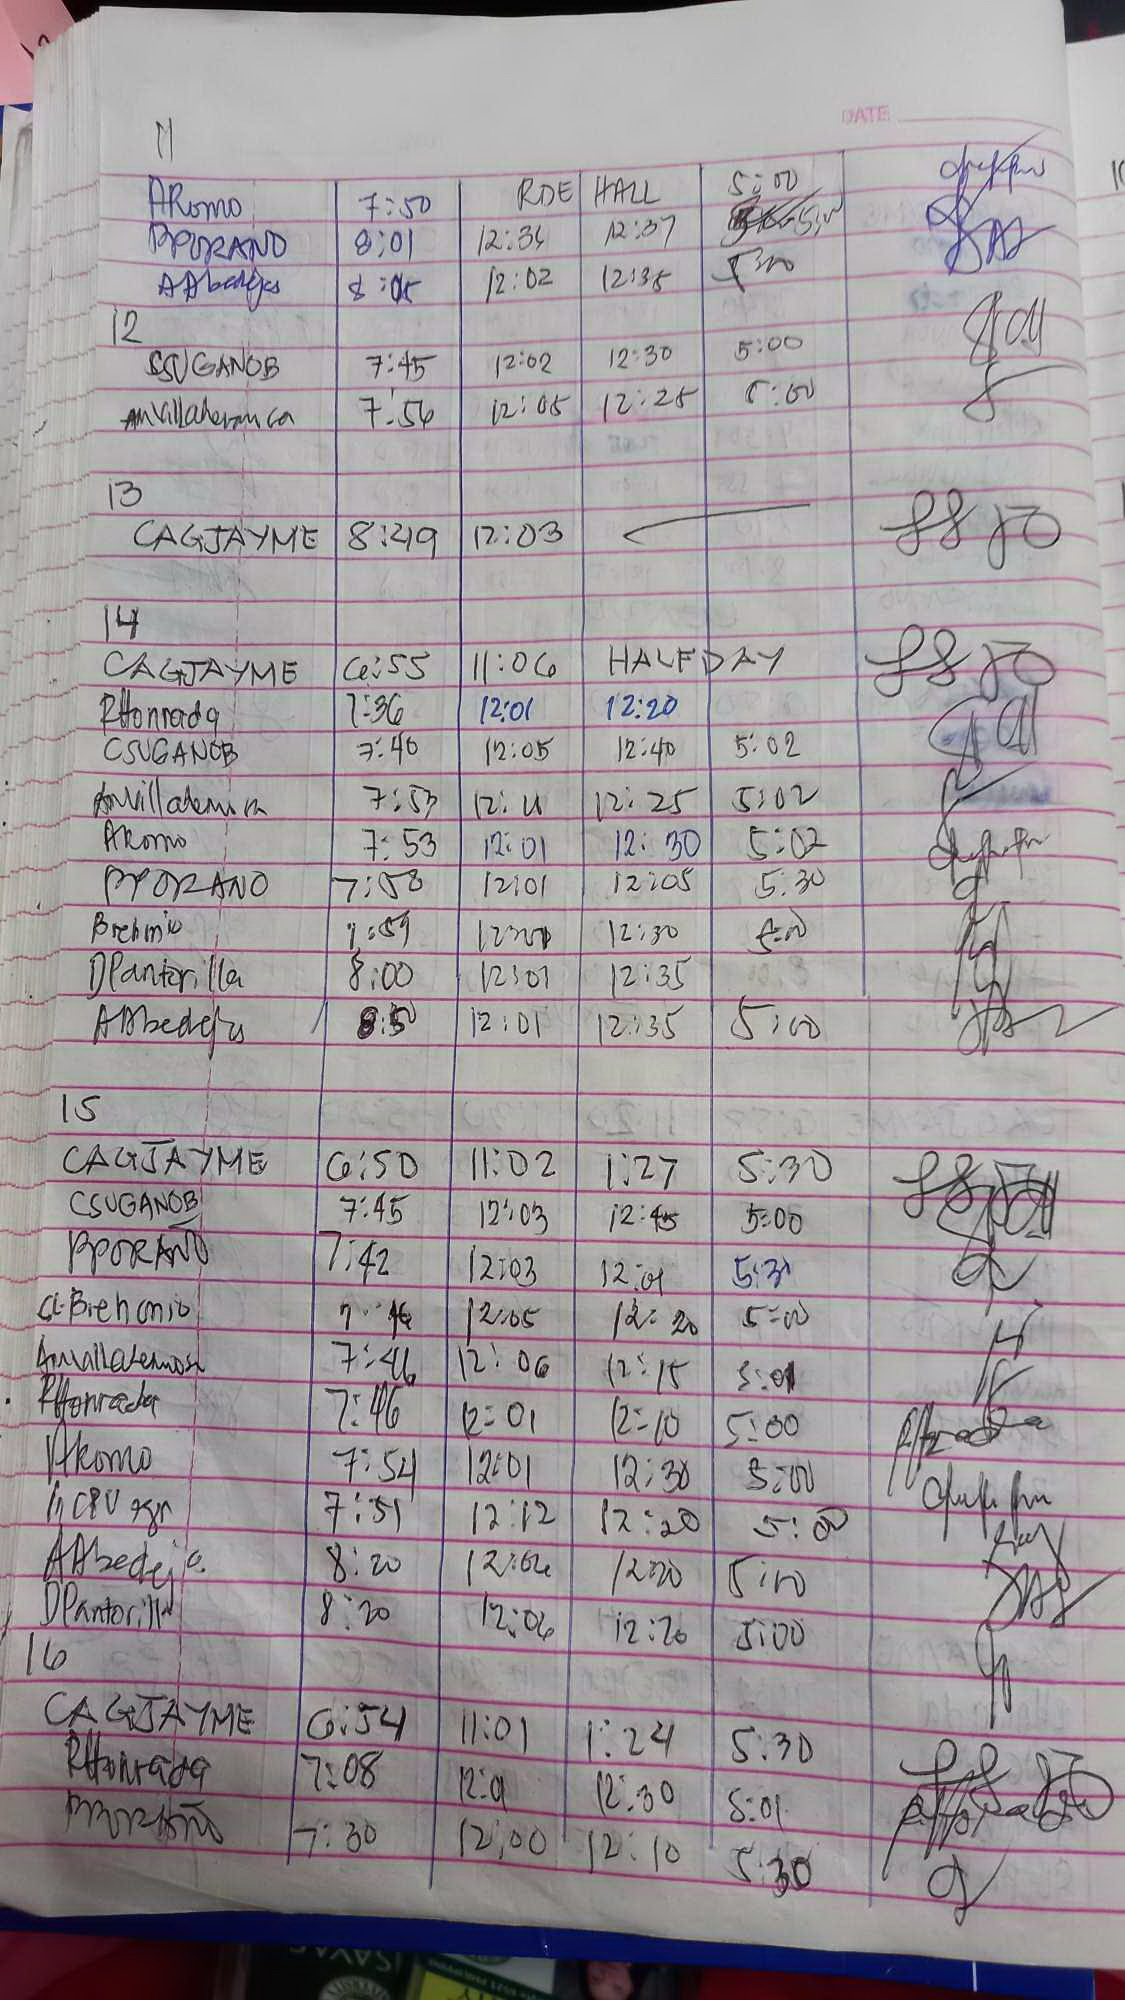 DATE
11
AKomo 7:50 RDE HALL 5:00
PPORANO 8:01 12:36 12:37
AAbedejas 8:05 12:02 12:35 5:00
12
CSUGANOB 7:45 12:02 12:30 5:00
7:56 12:05 12:25 5:00
13
CAGJAYME 8:49 12:03
14
CAGJAYME 6:55 11:06 HALFDAY
RHonrada 7:36 12:01 12:20
CSUGANOB 7:40 12:05 12:40 5:02
7:53 12:11 12:25 5:02
AKomo 7:53 12:01 12:30 5:02
PPORANO 7:58 12:01 12:05 5:30
7:59 12:30 5:00
DPantorilla 8:00 12:01 12:35
12:01 12:35 5:00
15
CAGJAYME 6:50 11:02 1:27 5:30
CSUGANOB 7:45 12:03 12:45 5:00
PPORAÑO 7:42 12:03 12:01 5:30
12:05 12:20 5:00
7:46 12:06 12:15 5:01
RHonrada 7:46 12:01 12:10 5:00
AKomo 7:54 12:01 12:30 5:00
7:51 12:12 12:20 5:00
AAbedeja 8:20 12:06 12:20 5:00
DPantorilla 8:20 12:06 12:20 5:00
16
CAGJAYME 6:54 11:01 1:24 5:30
RHonrada 7:08 12:30 5:01
PPORAÑO 7:30 12:00 12:10 5:30